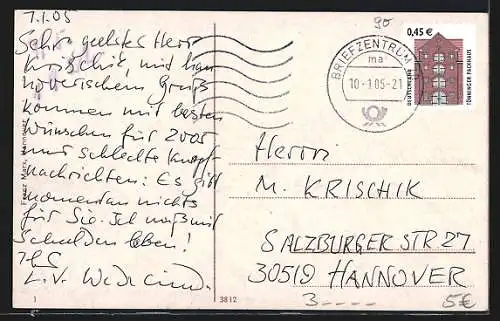 7.1.05
Sehr geehrter Herr
Krischik, mit han
noverischem Gruß
kommen mit besten
Wünschen für 2005
nur schlechte Knopf-
nachrichten: Es gibt
momentan nichts
für Sie. Ich muß mit
Schulden leben!
Ihr
90
BRIEFZENTRUM
ma
10-1.05-21
0,45 €
DEUTSCHLAND
TÖNNINGER PACKHAUS
Herrn
M. KRISCHIK
SALZBURGER STR 27
30519 HANNOVER
3----
5€
Franz Marx, Hannover
1
3812